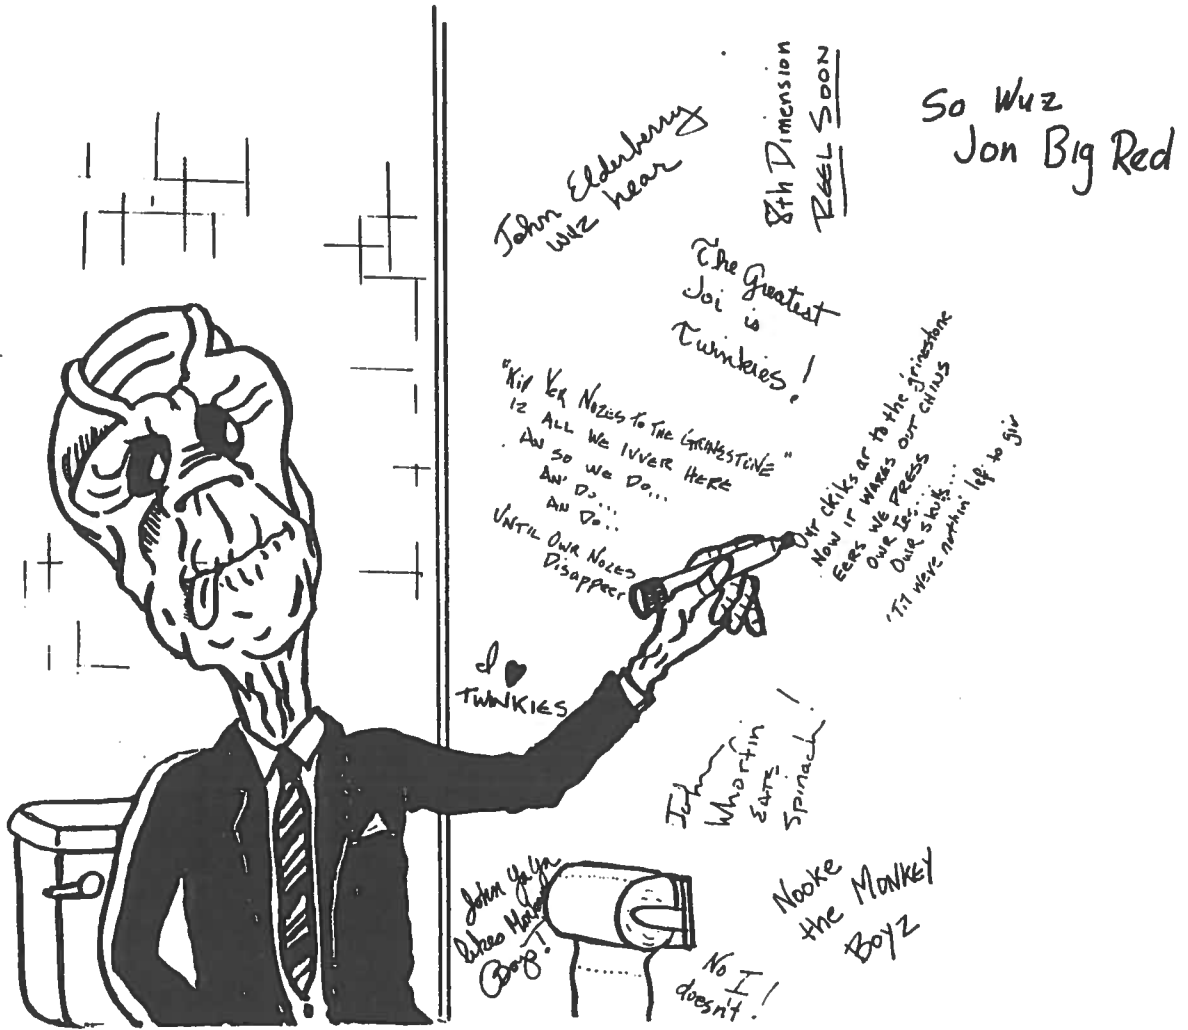 John Elderberry
wuz hear
8th Dimension
REEL SOON
So Wuz
Jon Big Red
The Greatest
Joi is
Twinkies!
"Kip YER NOZES TO THE GRINESTONE"
IZ ALL WE IVVER HERE
AN SO WE DO...
AN' DO...
AN DO...
UNTIL OWR NOZES
Disappeer
Owr chiks ar to the grinestone
NOW IT WARES OUT CHINS
EERS WE PRESS
OWR Ies...
OWR skulls...
'Til were nothin' left to giv
I ♥
TWINKIES
John
Whorfin
EATS
Spinach!
John YaYa
likes Monkey
Boys!
No I
doesn't!
Nooke
the MONKEY
Boyz